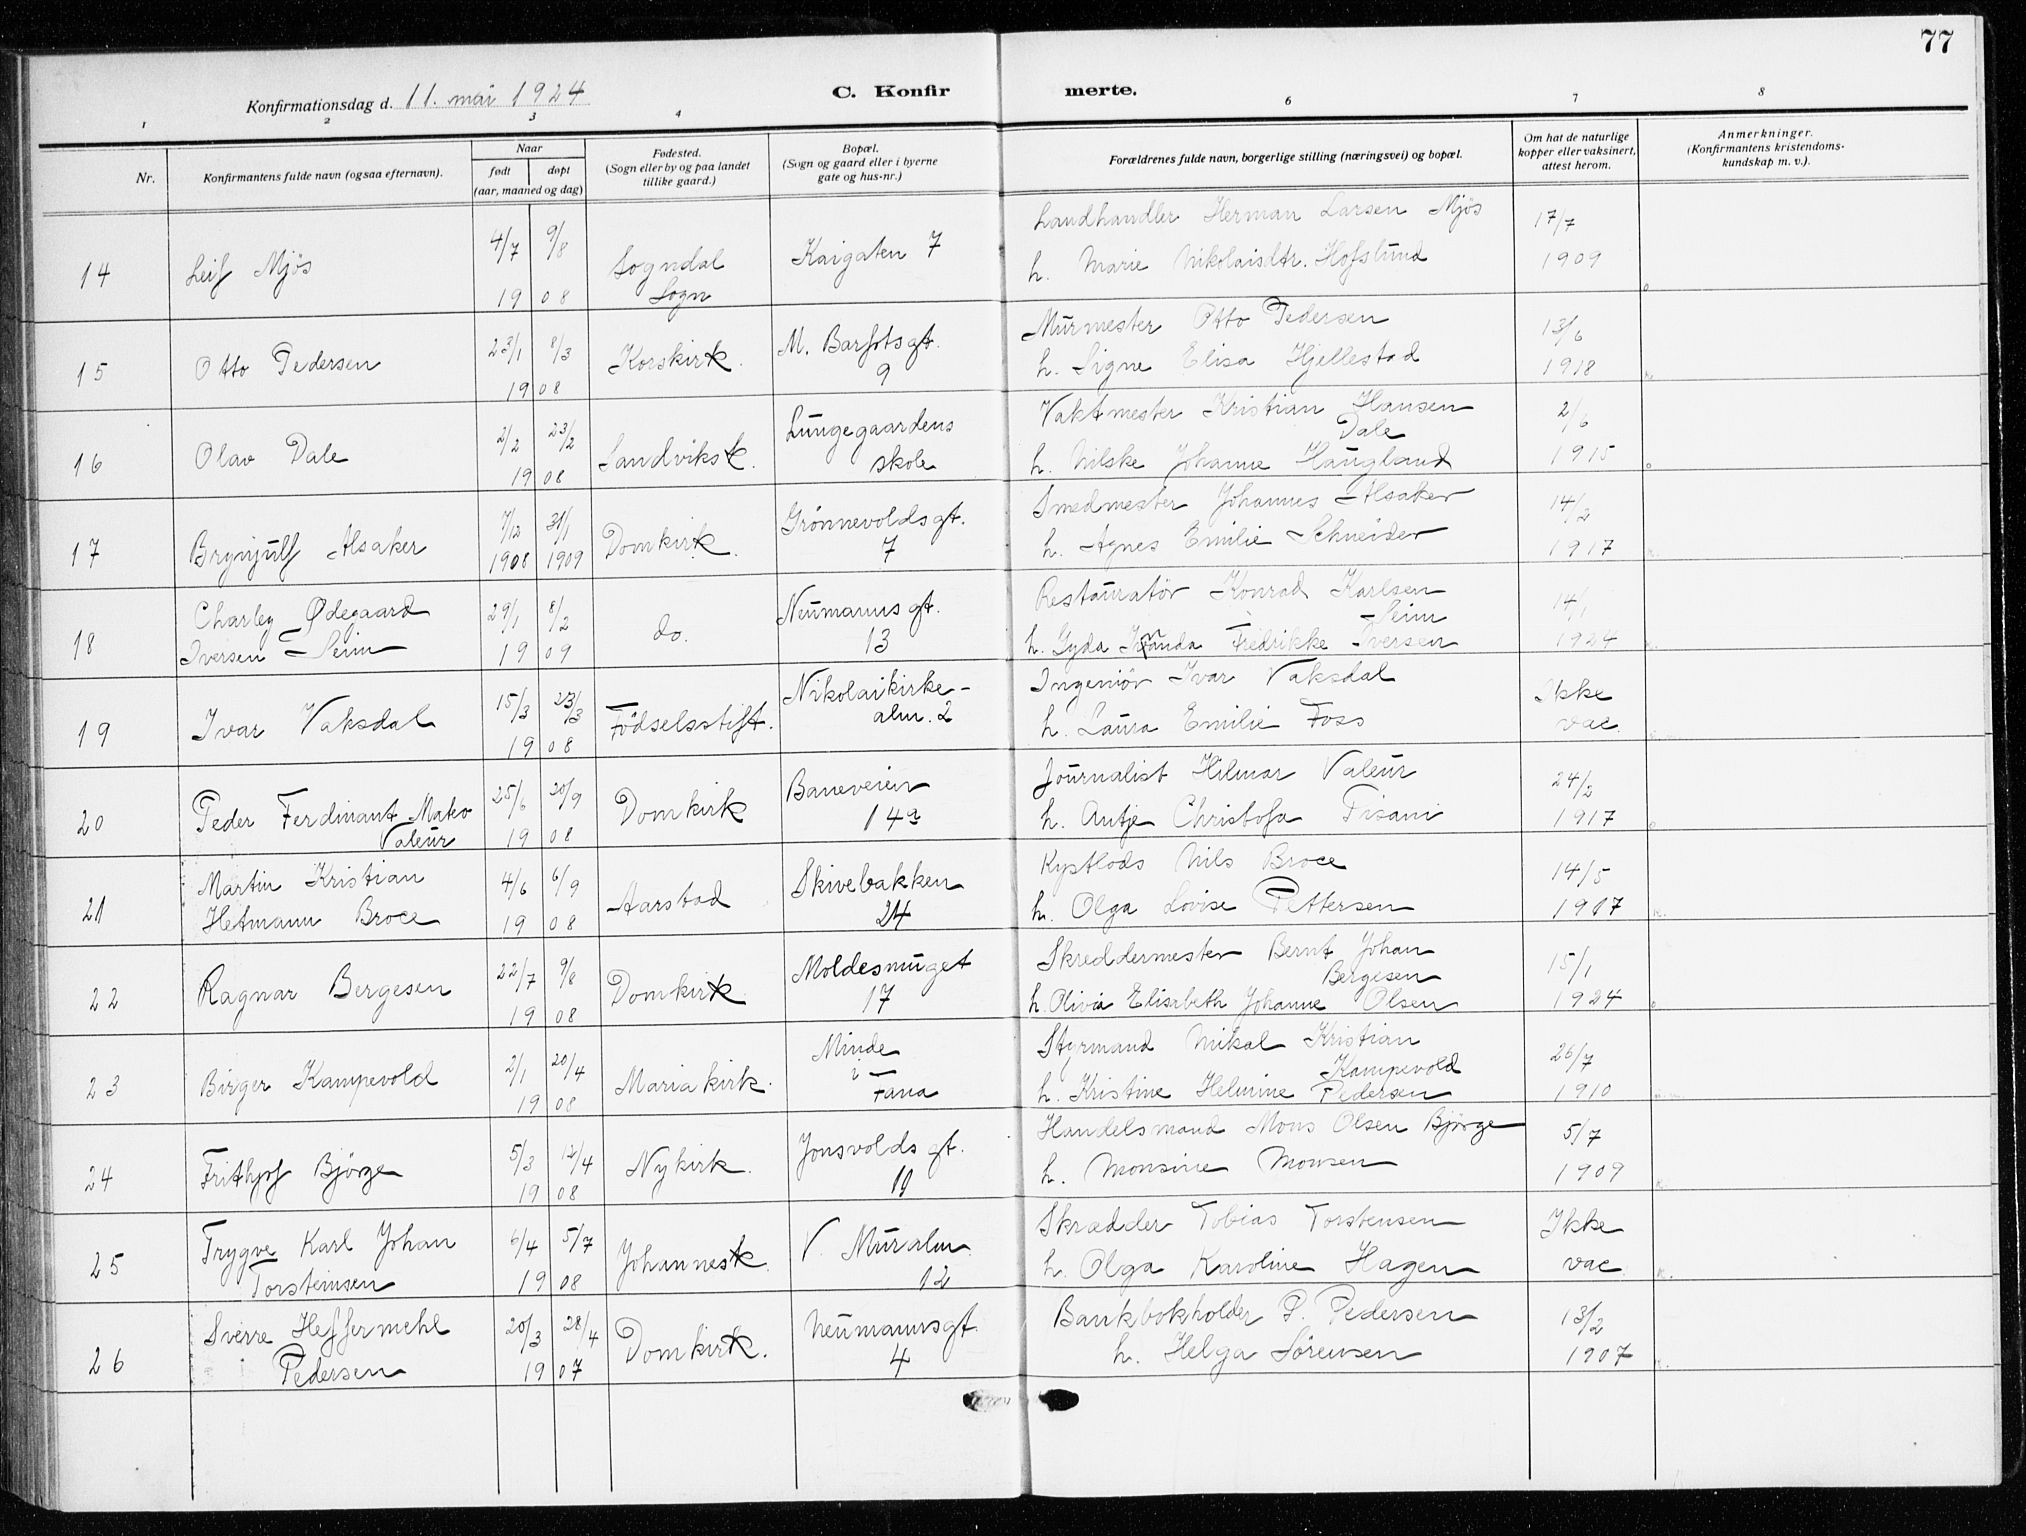 77
Konfirmationsdag d. 11. mai 1924
C. Konfirmerte.
1 2 3 4 6 7 8
Nr.
Konfirmantens fulde navn (ogsaa efternavn).
Naar
født døpt
(aar, maaned og dag)
Fødested.
(Sogn eller by og paa landet
tillike gaard.)
Bopæl.
(Sogn og gaard eller i byerne
gate og hus-nr.)
Forældrenes fulde navn, borgerlige stilling (næringsvei) og bopæl.
Om hat de naturlige
kopper eller vaksinert,
attest herom.
Anmerkninger.
(Konfirmantens kristendoms-
kundskap m. v.).
14 Leif Mjös 4/7 9/8 Sogndal Kaigaten 7 Landhandler Herman Larsen Mjös 17/7
1908 Sogn h. Marie Nikolaisdtr. Hofslund 1909
15 Otto Pedersen 23/1 8/3 Korskirk. M. Barfotsgt. Murmester Otto Pedersen 13/6
1908 9 h. Signe Elisa Hjellestad 1918
16 Olav Dale 2/2 23/2 Sandviksk. Lungegaardens Vaktmester Kristian Hansen 2/6
Dale
1908 skole h. Nilske Johanne Haugland 1915
17 Brynjulf Alsaker 7/12 31/1 Domkirk. Grönnevoldsgt. Smedmester Johannes Alsaker 14/2
1908 1909 7 h. Agnes Emilie Schneider 1917
18 Charley Ødegaard 29/1 8/2 do. Neumannsgt. Restauratör Konrad Karlsen 14/1
Seim
Iversen Seim 1909 13 h. Gyda Fredrikke Iversen 1924
19 Ivar Vaksdal 15/3 23/3 Födselsstift. Nikolaikirke- Ingeniör Ivar Vaksdal Ikke
1908 alm. 2 h. Laura Emilie Foss vac.
20 Peder Ferdinant Mateo 25/6 20/9 Domkirk Baneveien Journalist Hilmar Valeur 24/2
Valeur 1908 14a h. Antje Christofa Pisani 1917
21 Martin Kristian 4/6 6/9 Aarstad Skivebakken Kystlods Nils Broce 14/5
Hetmann Broce 1908 24 h. Olga Lovise Pettersen 1917
22 Ragnar Bergesen 22/7 9/8 Domkirk Moldesmuget Skreddermester Bernt Johan 15/1
Bergesen
1908 17 h. Olivia Elisabeth Johanne Olsen 1924
23 Birger Kampevold 2/1 20/4 Mariakirk. Minde Styrmand Mikal Kristian 26/7
i Kampevold
1908 Fana h. Kristine Helmine Pedersen 1910
24 Frithjof Björge 5/3 12/4 Nykirk. Jonsvoldsgt. Handelsmand Mons Olsen Björge 5/7
1908 19 h. Monsine Monsen 1909
25 Trygve Karl Johan 6/4 5/7 Johannesk. V Muralm. Skrædder Tobias Torstensen Ikke
Torsteinsen 1908 12 h. Olga Karoline Hagen vac.
26 Sverre Heffermehl 20/3 28/4 Domkirk. Neumannsgt. Bankbokholder P. Pedersen 13/2
Pedersen 1907 4 h. Helga Sörensen 1907